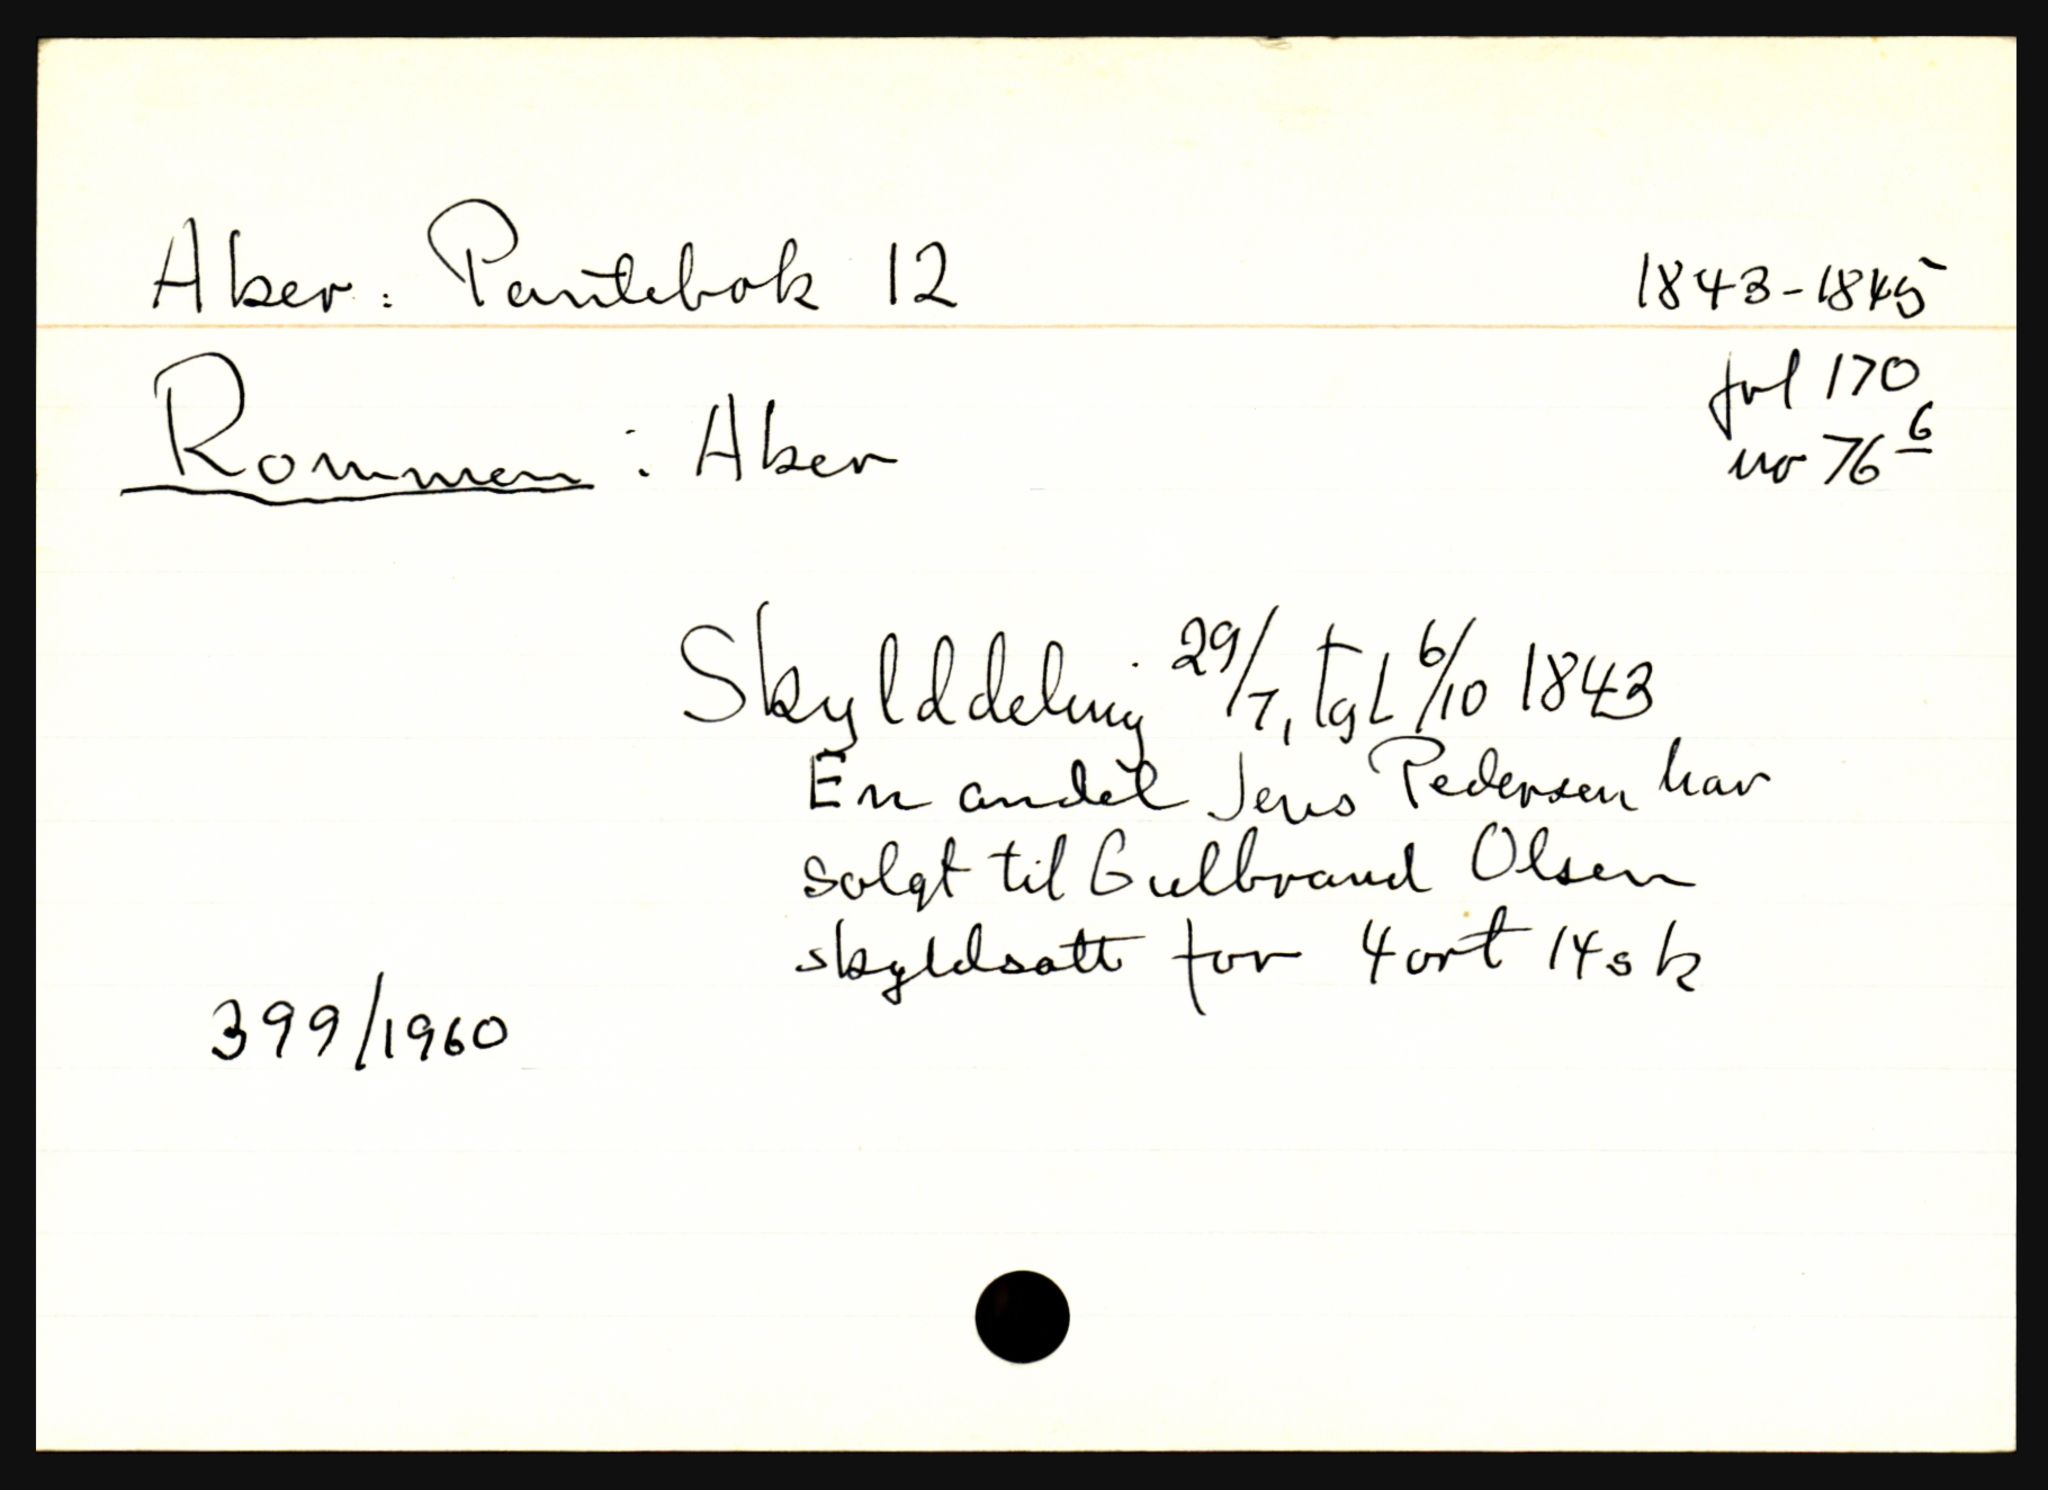 Aker: Pantebok 12 1843-1845
Rommen : Aker fol 170
no 76 6
Skylddeling 29/7, tgl 6/10 1843
En andel Jens Pedersen har
solgt til Gulbrand Olsen
skyldsatt for 4 ort 14 sk
399/1960